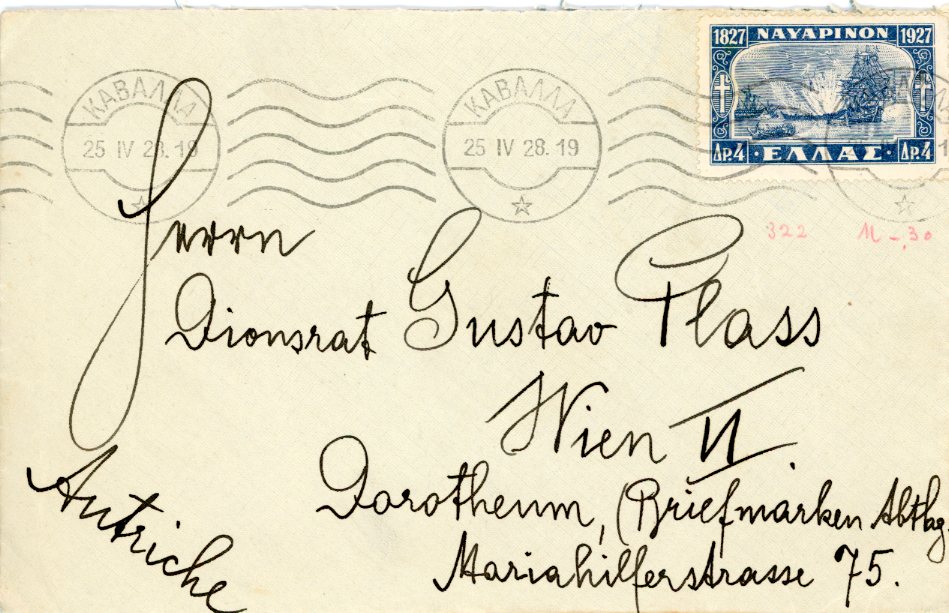 1827 ΝΑΥΑΡΙΝΟΝ 1927
ΔΡ.4 · ΕΛΛΑΣ · ΔΡ.4
ΚΑΒΑΛΛΑ
25 IV 28.19
ΚΑΒΑΛΛΑ
25 IV 28.19
322
Herrn
Dionsrat Gustav Plass
Wien VI.
Dorotheum, (Briefmarken Abtlg.
Mariahilferstrasse 75.
Autriche